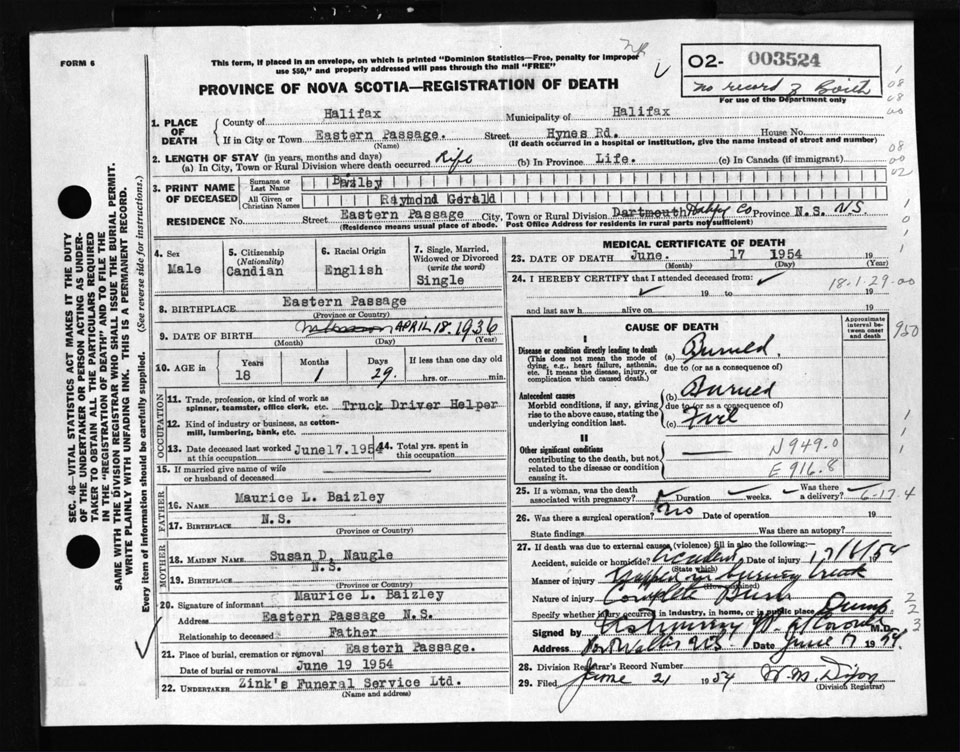 FORM 6
This form, if placed in an envelope, on which is printed "Dominion Statistics—Free, penalty for improper
use $50," and properly addressed will pass through the mail "FREE"
O2- 003524
no record of Birth
For use of the Department only
PROVINCE OF NOVA SCOTIA—REGISTRATION OF DEATH
1. PLACE OF DEATH
County of Halifax Municipality of Halifax
If in City or Town Eastern Passage. Street Hynes Rd. House No.
(Name) (If death occurred in a hospital or institution, give the name instead of street and number)
2. LENGTH OF STAY (in years, months and days)
(a) In City, Town or Rural Division where death occurred Life (b) In Province Life. (c) In Canada (if immigrant)
3. PRINT NAME OF DECEASED
Surname or Last Name Baizley
All Given or Christian Names Raymond Gerald
RESIDENCE No. Street Eastern Passage City, Town or Rural Division Dartmouth Halifx Co Province N.S. N.S.
(Residence means usual place of abode. Post Office Address for residents in rural parts not sufficient)
4. Sex Male
5. Citizenship (Nationality) Candian
6. Racial Origin English
7. Single, Married, Widowed or Divorced (write the word) Single
8. BIRTHPLACE Eastern Passage
(Province or Country)
9. DATE OF BIRTH APRIL 18. 1936
(Month) (Day) (Year)
10. AGE in Years 18 Months 1 Days 29. If less than one day old hrs. or min.
OCCUPATION
11. Trade, profession, or kind of work as
spinner, teamster, office clerk, etc. Truck Driver Helper
12. Kind of industry or business, as cotton-
mill, lumbering, bank, etc.
13. Date deceased last worked at this occupation June 17. 1954
14. Total yrs. spent in this occupation
15. If married give name of wife
or husband of deceased
FATHER
16. NAME Maurice L. Baizley
17. BIRTHPLACE N.S.
(Province or Country)
MOTHER
18. MAIDEN NAME Susan D. Naugle
19. BIRTHPLACE N.S.
(Province or Country)
20. Signature of informant Maurice L. Baizley
Address Eastern Passage N.S.
Relationship to deceased Father
21. Place of burial, cremation or removal Eastern Passage.
Date of burial or removal June 19 1954
22. UNDERTAKER Zink's Funeral Service Ltd.
(Name and address)
MEDICAL CERTIFICATE OF DEATH
23. DATE OF DEATH June. 17 1954 19
(Month) (Day) (Year)
24. I HEREBY CERTIFY that I attended deceased from:
18-1-29-00
19 to 19
and last saw h alive on 19
CAUSE OF DEATH
Approximate interval between onset and death
950
I
Disease or condition directly leading to death
(This does not mean the mode of
dying, e.g., heart failure, asthenia,
etc. It means the disease, injury, or
complication which caused death.)
(a) Burned.
due to (or as a consequence of)
Antecedent causes
Morbid conditions, if any, giving
rise to the above cause, stating the
underlying condition last.
(b) Burned
due to (or as a consequence of)
(c)
II
Other significant conditions
contributing to the death, but not
related to the disease or condition
causing it.
N949.0
E 916.8
25. If a woman, was the death
associated with pregnancy? Duration weeks. Was there a delivery?
6-17-4
26. Was there a surgical operation? No Date of operation 19
State findings Was there an autopsy?
27. If death was due to external causes (violence) fill in also the following:
Accident, suicide or homicide? Accident Date of injury 17/6/54
(State which)
Manner of injury Trapped in burning truck
(How sustained)
Nature of injury Complete Burn
Specify whether injury occurred in industry, in home, or in public place Dump
Signed by M.D.
Address N.S. Date June 17 1954.
28. Division Registrar's Record Number
29. Filed June 21 1954 W. M. Dixon
(Division Registrar)
SEC. 46—VITAL STATISTICS ACT MAKES IT THE DUTY
OF THE UNDERTAKER OR PERSON ACTING AS UNDER-
TAKER TO OBTAIN ALL THE PARTICULARS REQUIRED
IN THE "REGISTRATION OF DEATH" AND TO FILE THE
SAME WITH THE DIVISION REGISTRAR WHO SHALL ISSUE THE BURIAL PERMIT.
WRITE PLAINLY WITH UNFADING INK. THIS IS A PERMANENT RECORD.
Every item of information should be carefully supplied. (See reverse side for instructions.)